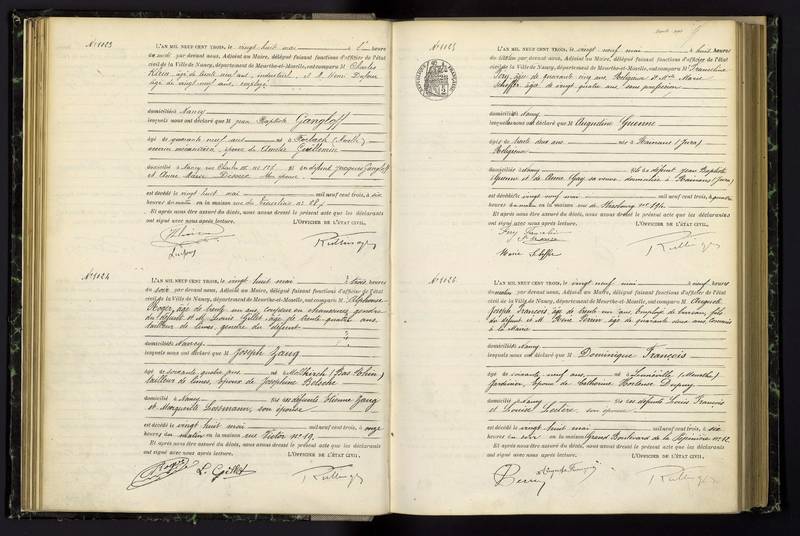 N° 1023
L'AN MIL NEUF CENT TROIS, le vingt huit mai à heure
du par devant nous, Adjoint au Maire, délégué faisant fonctions d'officier de l'état
civil de la Ville de Nancy, département de Meurthe-et-Moselle, ont comparu M Charles
âgé de trente neuf ans, industriel et M Henri Dufour
âgé de vingt neuf ans, employé
domiciliés à Nancy
lesquels nous ont déclaré que M Jean Baptiste Gangloff
âgé de quarante neuf ans né à Forbach (Moselle)
ouvrier mécanicien, époux de Amélie Guillemin
domicilié à Nancy rue Charles III n° 127 fils de défunt Jacques Gangloff
et Anne Marie son épouse
est décédé le vingt huit mai mil neuf cent trois, à six
heures du matin en la maison rue du n° 28
Et après nous être assuré du décès, nous avons dressé le présent acte que les déclarants
ont signé avec nous après lecture. L'OFFICIER DE L'ÉTAT CIVIL,
N° 1024
L'AN MIL NEUF CENT TROIS, le vingt huit mai à trois heures
du soir par devant nous, Adjoint au Maire, délégué faisant fonctions d'officier de l'état
civil de la Ville de Nancy, département de Meurthe-et-Moselle, ont comparu M Alphonse
Roger, âgé de trente un ans, coupeur en chaussures, gendre
du défunt et M Louis Gillet âgé de trente quatre ans
tailleur de limes, gendre du défunt
domiciliés à Nancy
lesquels nous ont déclaré que M Joseph Zang
âgé de soixante quatre ans né à (Bas Rhin)
tailleur de limes, époux de Joséphine
domicilié à Nancy fils des défunts Etienne Zang
et Marguerite son épouse
est décédé le vingt huit mai mil neuf cent trois, à onze
heures du matin en la maison rue Victor n° 19
Et après nous être assuré du décès, nous avons dressé le présent acte que les déclarants
ont signé avec nous après lecture. L'OFFICIER DE L'ÉTAT CIVIL,
Roger L. Gillet
N° 1025
L'AN MIL NEUF CENT TROIS, le vingt neuf mai à huit heures
du matin par devant nous, Adjoint au Maire, délégué faisant fonctions d'officier de l'état
civil de la Ville de Nancy, département de Meurthe-et-Moselle, ont comparu M Francéline
Fery, âgée de quarante cinq ans Religieuse et Mlle Marie
Scheffer âgée de vingt quatre ans sans profession
domiciliés à Nancy
lesquels nous ont déclaré que M Augustine Guenne
âgée de trente deux ans née à Rainans (Jura)
Religieuse
domiciliée à Nancy fille de défunt Jean Baptiste
Guenne et de Anne Gay sa veuve domiciliée à Rainans (Jura)
est décédée le vingt neuf mai mil neuf cent trois, à quatre
heures du matin en la maison rue de Strasbourg n° 194
Et après nous être assuré du décès, nous avons dressé le présent acte que les déclarants
ont signé avec nous après lecture. L'OFFICIER DE L'ÉTAT CIVIL,
N° 1026
L'AN MIL NEUF CENT TROIS, le vingt neuf mai à neuf heures
du matin par devant nous, Adjoint au Maire, délégué faisant fonctions d'officier de l'état
civil de la Ville de Nancy, département de Meurthe-et-Moselle, ont comparu M Auguste
Joseph François, âgé de trente un ans, Employé de bureau, fils
du défunt et M René Perrin âgé de quarante deux ans, Commis
à la Mairie
domiciliés à Nancy
lesquels nous ont déclaré que M Dominique François
âgé de soixante neuf ans né à Lunéville (Meurthe)
Jardinier, époux de Catherine Hortense Dupuy
domicilié à Nancy fils des défunts Louis François
et Louise Leclère son épouse
est décédé le vingt huit mai mil neuf cent trois, à six
heures du soir en la maison Grand Boulevard de la Pépinière n° 12
Et après nous être assuré du décès, nous avons dressé le présent acte que les déclarants
ont signé avec nous après lecture. L'OFFICIER DE L'ÉTAT CIVIL,